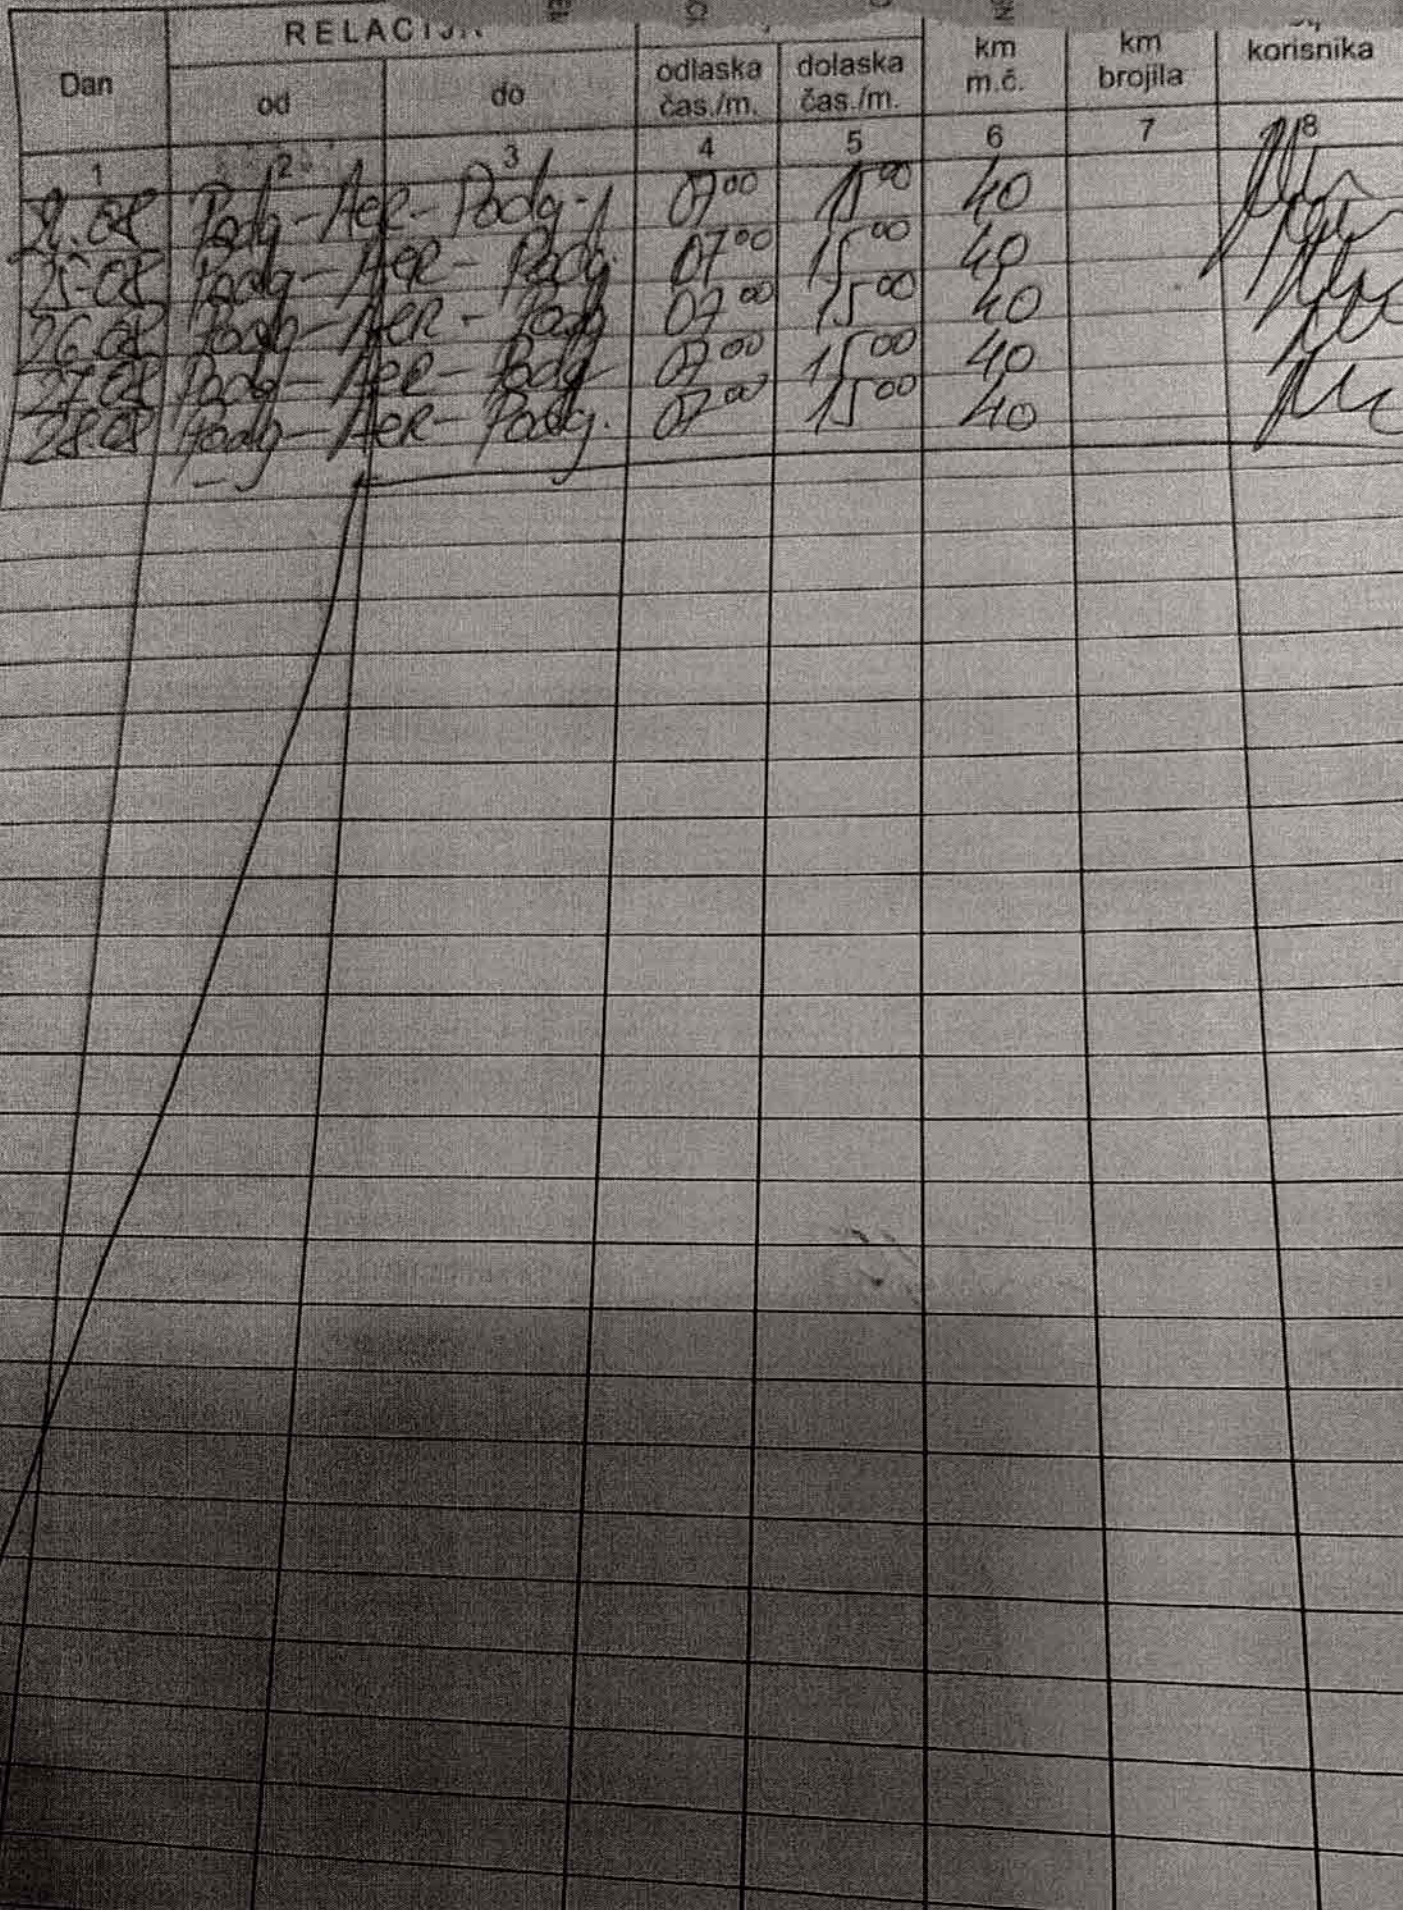 RELACIJA
Dan od do odlaska čas./m. dolaska čas./m. km m.č. km brojila korisnika
1 2 3 4 5 6 7 8
Podg-Aer-Podg- 07⁰⁰ 15⁰⁰ 40
25.08 Podg-Aer-Podg. 07⁰⁰ 15⁰⁰ 40
26.08 Podg-Aer-Podg 07⁰⁰ 15⁰⁰ 40
27.08 Podg-Aer-Podg 07⁰⁰ 15⁰⁰ 40
28.08 Podg-Aer-Podg. 07⁰⁰ 15⁰⁰ 40